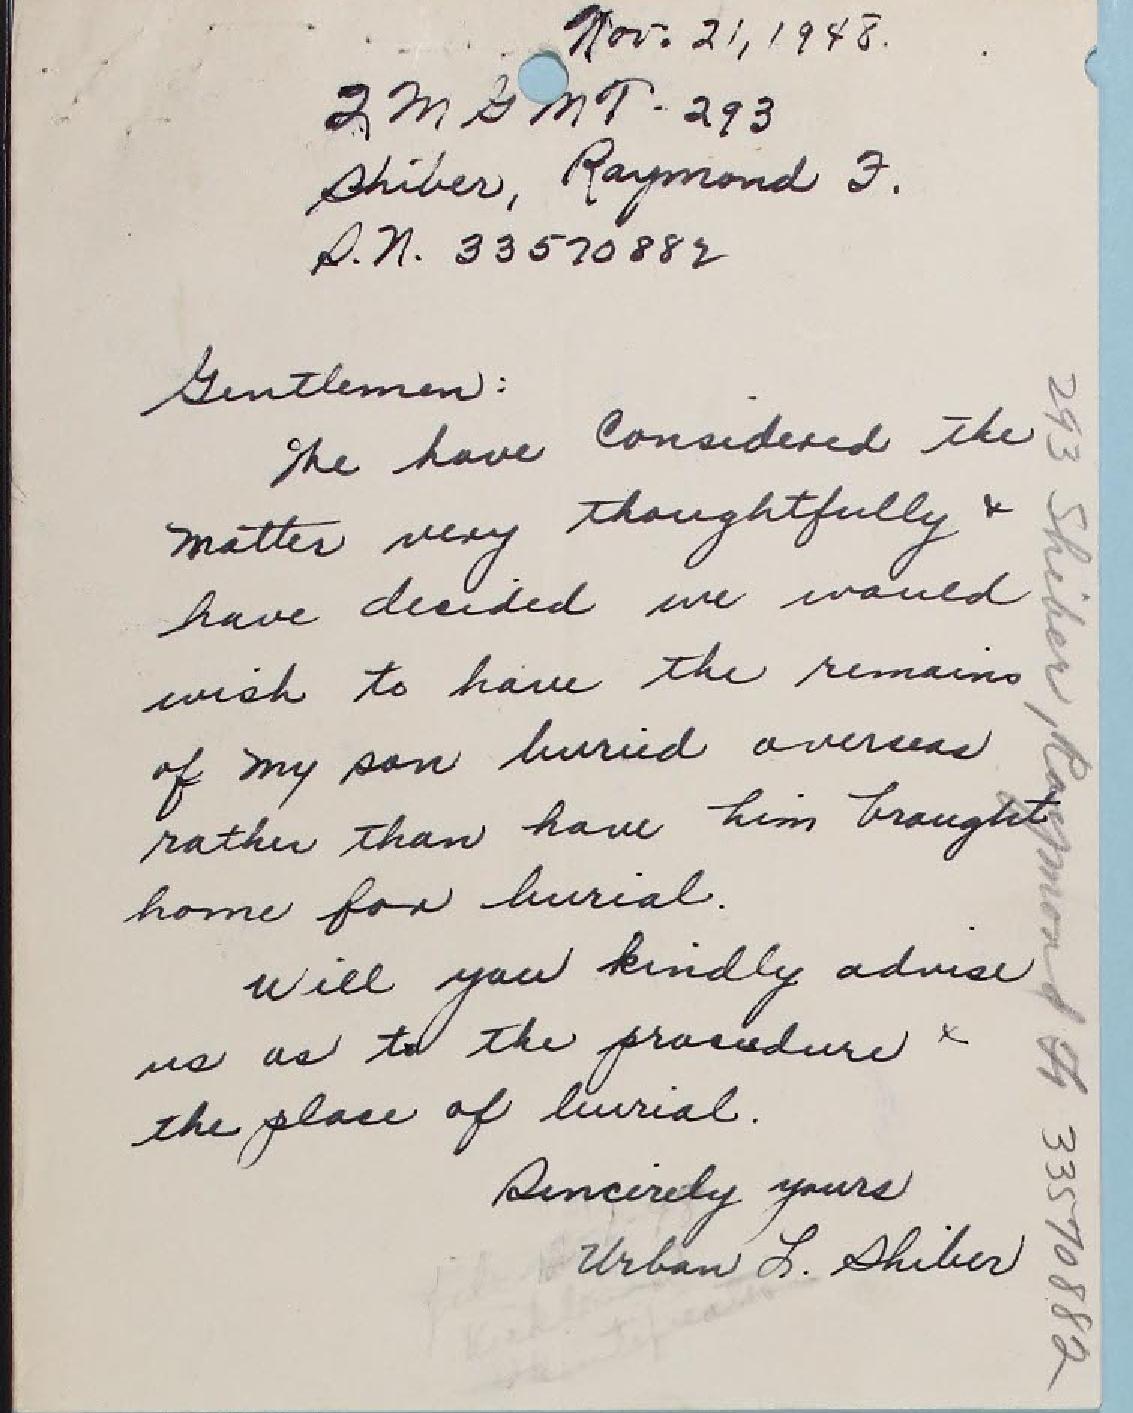 Nov. 21, 1948.
QMGMT - 293
Shiber, Raymond F.
S.N. 33570882
Gentlemen:
We have Considered the
Matter very thoughtfully &
have decided we would
wish to have the remains
of My son buried overseas
rather than have him brought
home for burial.
Will you kindly advise
us as to the procedure &
the place of burial.
Sincerely yours
Urban L. Shiber
293 Shiber, Raymond 33570882